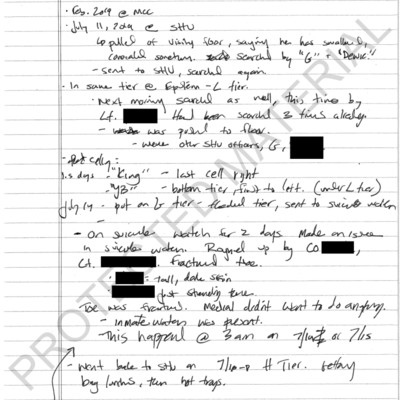 · Feb. 2019 @ MCC
· July 11, 2019 @ SHU
↳ pulled off visiting floor, saying he has swallowed,
concealed something. searched by "G" + "Dewie."
- sent to SHU, searched again.
· In same tier @ Epstein - L tier.
· Next morning searched as well, this time by
Lt. Had been searched 3 times already.
- was pushed to floor.
- were other SHU officers, G,
- celly:
1.5 days - "King" - last cell right
- "YB" - bottom tier, first to left. (under L tier)
July 14 - put on G tier - flooded tier, sent to suicide watch
-
- On suicide watch for 2 days. Made an issue
in suicide watch. Roughed up by CO ,
Lt. . Fractured toe.
· - tall, dark skin
· just standing there.
- Toe was fractured. Medical didn't want to do anything.
- inmate watcher was present.
- This happened @ 3 am on 7/14 or 7/15
- Went back to SHU on 7/18 - H Tier. Getting
bag lunches, then hot trays.
PROTECTED MATERIAL